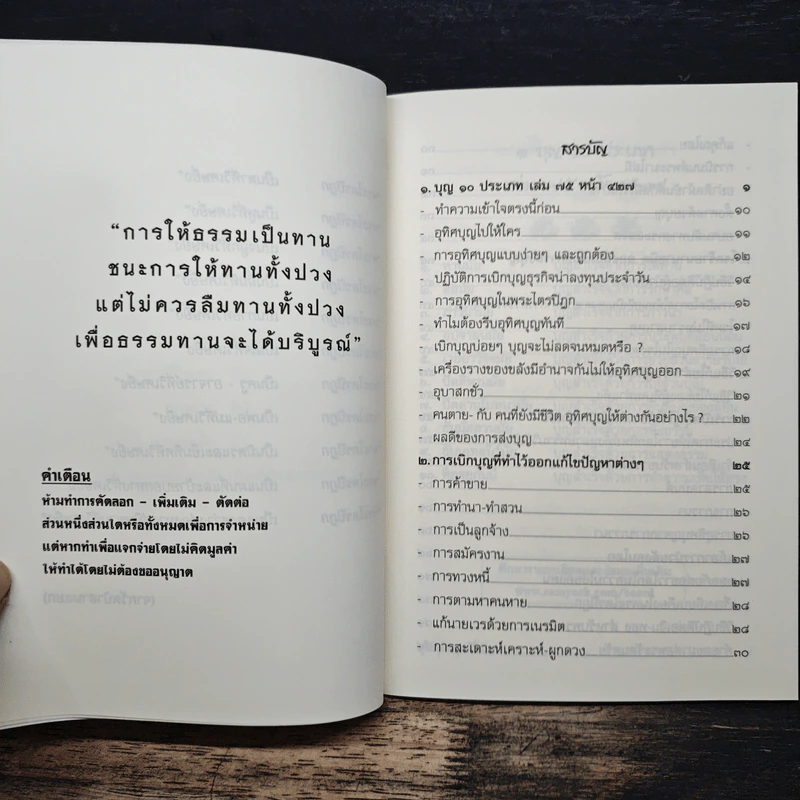 “การให้ธรรมเป็นทาน
ชนะการให้ทานทั้งปวง
แต่ไม่ควรลืมทานทั้งปวง
เพื่อธรรมทานจะได้บริบูรณ์”
คำเตือน
ห้ามทำการคัดลอก – เพิ่มเติม – ตัดต่อ
ส่วนหนึ่งส่วนใดหรือทั้งหมดเพื่อการจำหน่าย
แต่หากทำเพื่อแจกจ่ายโดยไม่คิดมูลค่า
ให้ทำได้โดยไม่ต้องขออนุญาต
สารบัญ
๑. บุญ ๑๐ ประเภท เล่ม ๗๕ หน้า ๔๒๗ ๑
- ทำความเข้าใจตรงนี้ก่อน ๑๐
- อุทิศบุญไปให้ใคร ๑๑
- การอุทิศบุญแบบง่ายๆ และถูกต้อง ๑๒
- ปฏิบัติการเบิกบุญธุรกิจน่าลงทุนประจำวัน ๑๔
- การอุทิศบุญในพระไตรปิฎก ๑๖
- ทำไมต้องรีบอุทิศบุญทันที ๑๗
- เบิกบุญบ่อยๆ บุญจะไม่ลดจนหมดหรือ ? ๑๘
- เครื่องรางของขลังมีอำนาจกันไม่ให้อุทิศบุญออก ๑๙
- อุบาสกชั่ว ๒๑
- คนตาย- กับ คนที่ยังมีชีวิต อุทิศบุญให้ต่างกันอย่างไร ? ๒๒
- ผลดีของการส่งบุญ ๒๔
๒. การเบิกบุญที่ทำไว้ออกแก้ไขปัญหาต่างๆ ๒๕
- การค้าขาย ๒๕
- การทำนา-ทำสวน ๒๖
- การเป็นลูกจ้าง ๒๖
- การสมัครงาน ๒๗
- การทวงหนี้ ๒๗
- การตามหาคนหาย ๒๘
- แก้นายเวรด้วยการเนรมิต ๒๘
- การสะเดาะห์เคราะห์-ผูกดวง ๓๐